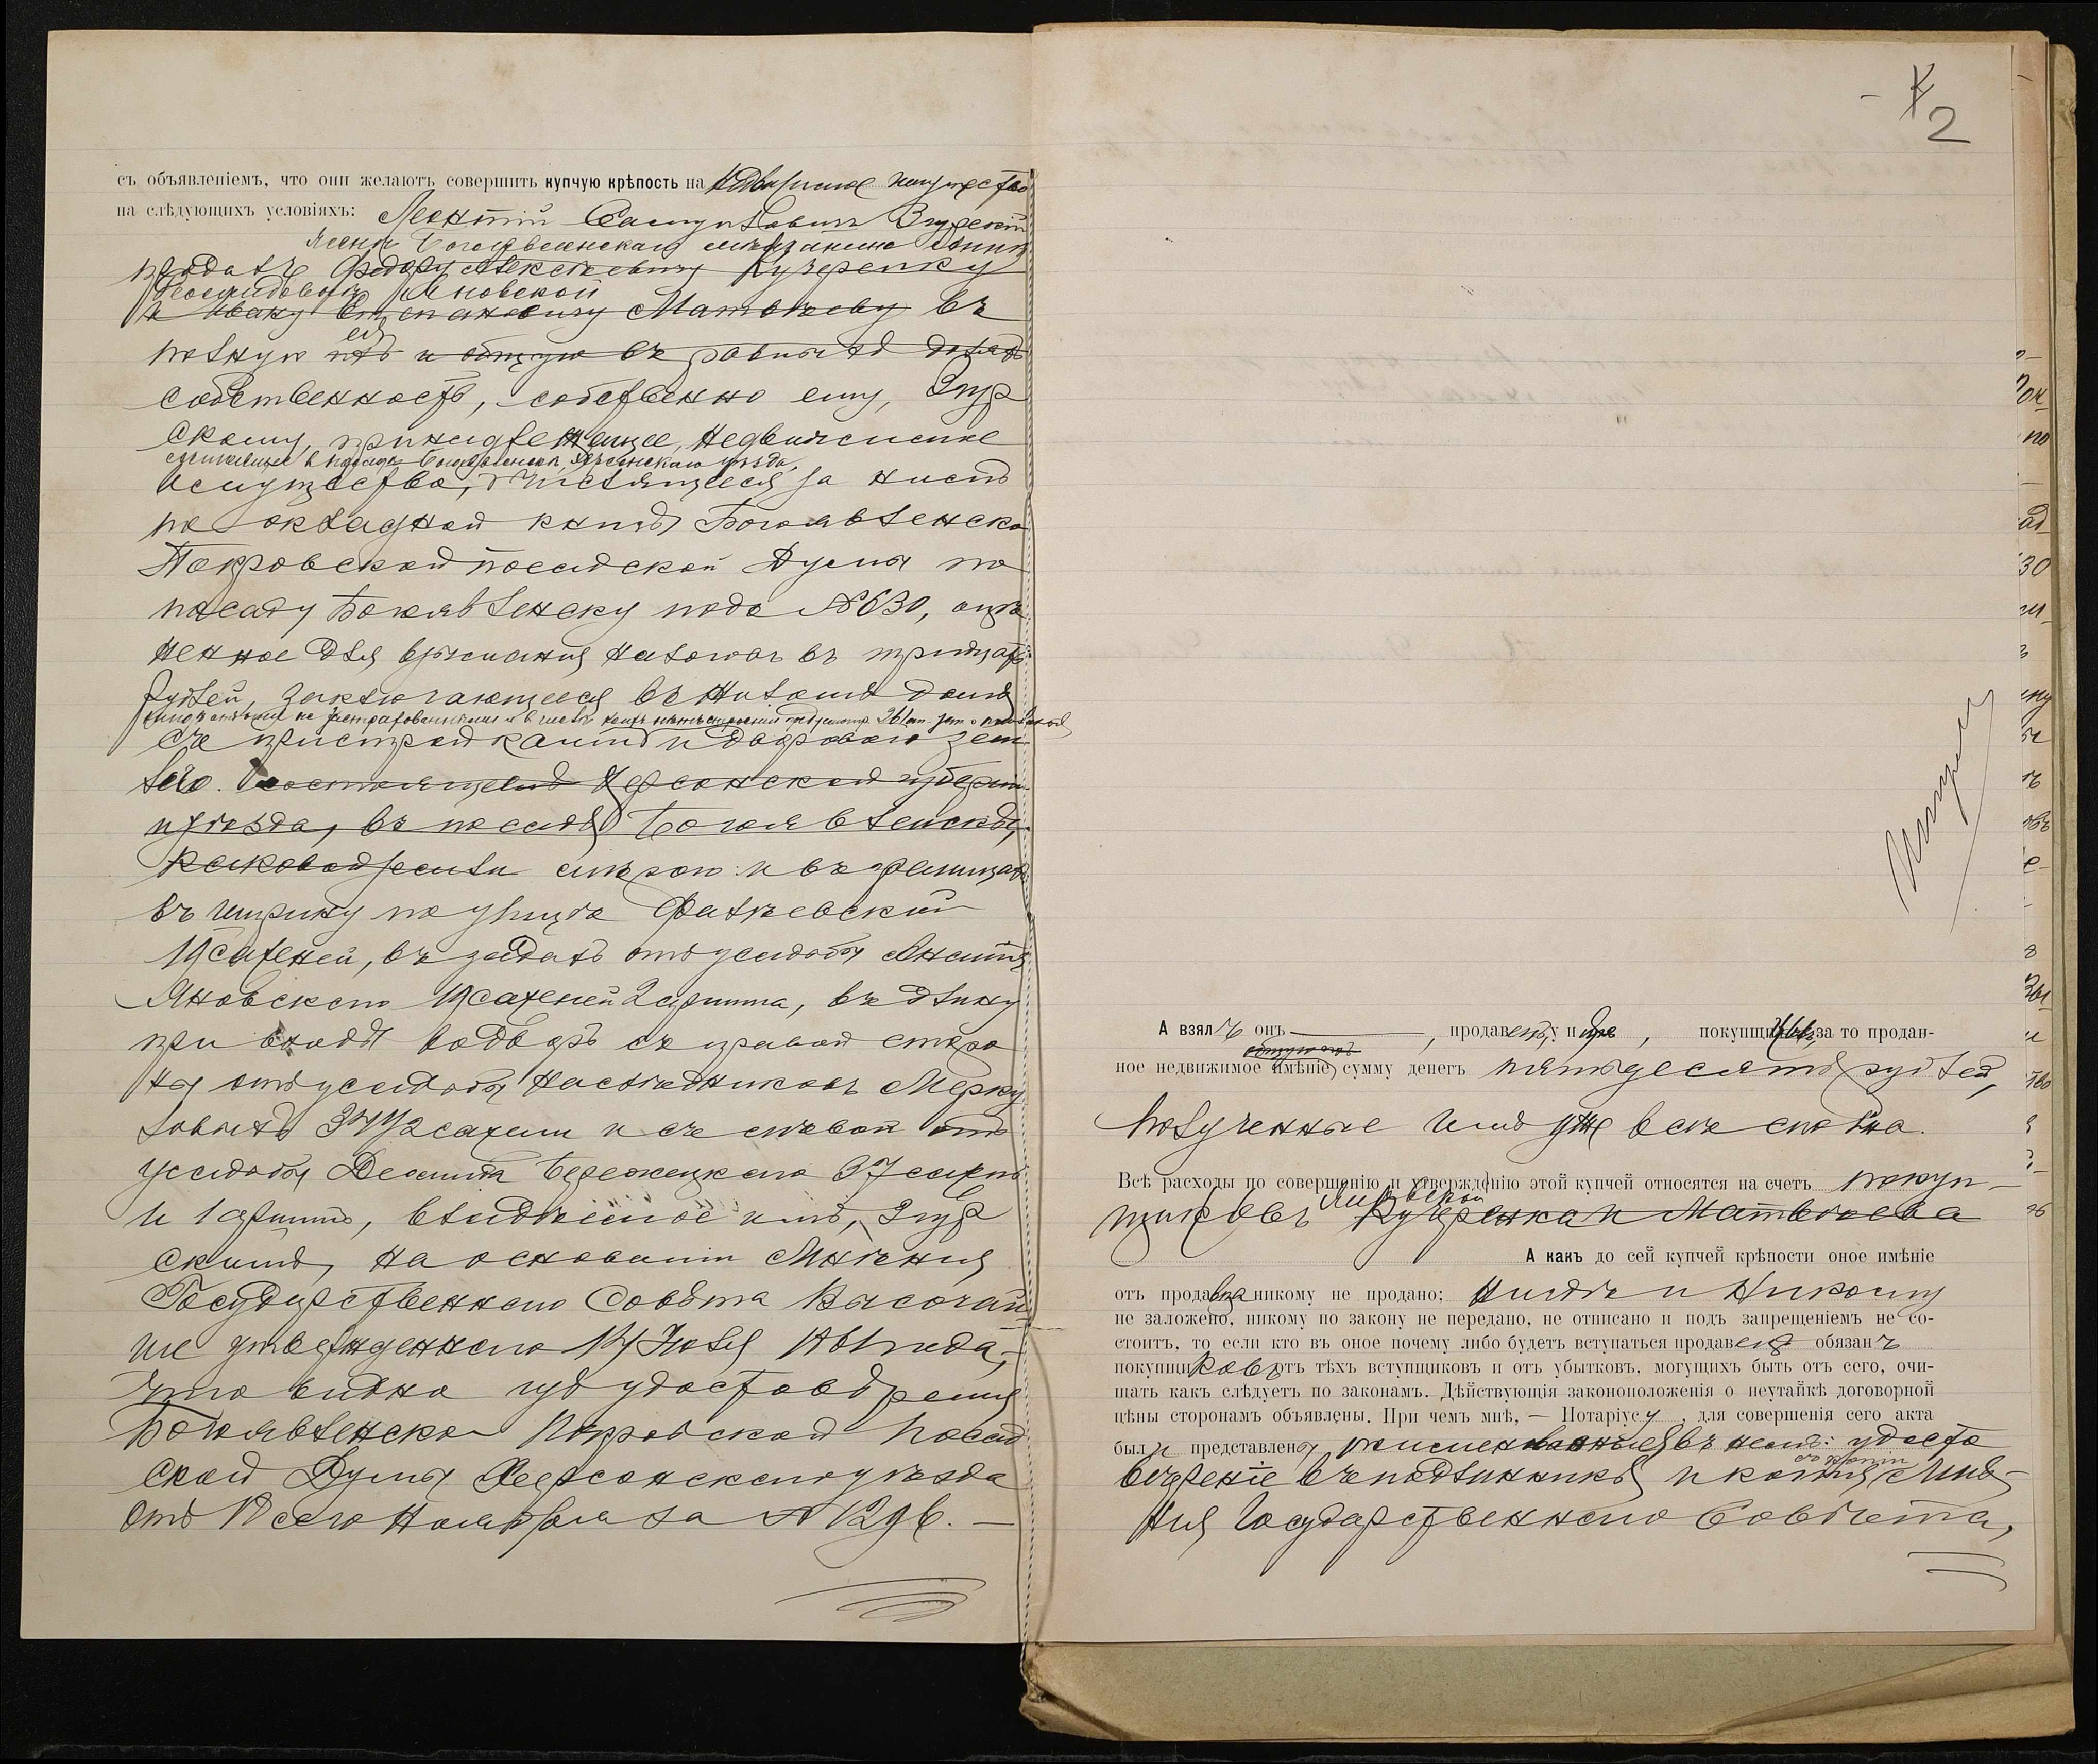 съ объявленіемъ, что они желаютъ совершить купчую крѣпость на недвижимое имущество
на слѣдующихъ условіяхъ: Леонтій Самуиловичъ Згурскій
женѣ Богоявленскаго мѣщанина Аннѣ
продалъ Федору Алексѣевичу Кучеренку
Яновской
и Ивану Степановичу Матвѣеву въ
полную ей ихъ и общую въ равныхъ доляхъ
собственность, собственно ему, Згур
скому, принадлежащее, недвижимое
состоящее въ посадѣ Богоявленскѣ, Херсонскаго уѣзда,
имущество, числящееся за нимъ
по окладной книгѣ Богоявленско
Покровской посадской Думы по
посаду Богоявленску подъ №630, оцѣ
ненное для взиманія налоговъ въ тридцать
рублей, заключающееся въ жиломъ домѣ
съ пристройками и дворовою зем
лею. состоящемъ Херсонской губерніи
и уѣзда, въ посадѣ Богоявленскѣ,
каковой земли мѣрою: и въ границахъ
въ ширину по улицѣ Фалѣевской
19 саженей, въ задахъ отъ усадьбы
Яновскаго 19 саженей 2 аршина, въ длину
при входѣ во дворъ съ правой сторо
ны отъ усадьбы наслѣдниковъ Мерку
ловыхъ 34 1/2 сажени и съ лѣвой отъ
усадьбы Бережецкаго 37 сажень
и 1 аршинъ, владѣемое имъ, Згур
скимъ, на основаніи Мнѣнія
Государственнаго Совѣта Высочай
ше утвержденнаго
что видно изъ удостовѣренія
Богоявленско Покровской Посад
ской Думы Херсонскаго уѣзда
отъ 18 сего Ноября за № 1296. —
2
А взялъ онъ, продавецъ, у нея, покупщиковъ за то продан-
ное недвижимое имѣніе сумму денегъ пятьдесятъ рублей,
полученные имъ уже всѣ сполна.
Всѣ расходы по совершенію и утвержденію этой купчей относятся на счетъ покуп-
щиковъ Яновской Кучеренка и Матвѣева
А какъ до сей купчей крѣпости оное имѣніе
отъ продавца никому не продано: нигдѣ и никому
не заложено, никому по закону не передано, не отписано и подъ запрещеніемъ не со-
стоитъ, то если кто въ оное почему либо будетъ вступаться продавецъ обязанъ
покупщиковъ отъ тѣхъ вступщиковъ и отъ убытковъ, могущихъ быть отъ сего, очи-
щать какъ слѣдуетъ по законамъ. Дѣйствующія законоположенія о неутайкѣ договорной
цѣны сторонамъ объявлены. При чемъ мнѣ, — Нотаріусу, для совершенія сего акта
были представлены поименованныя въ немъ: удосто
вѣреніе въ подлинникѣ и копія Мнѣ-
нія Государственнаго Совѣта,